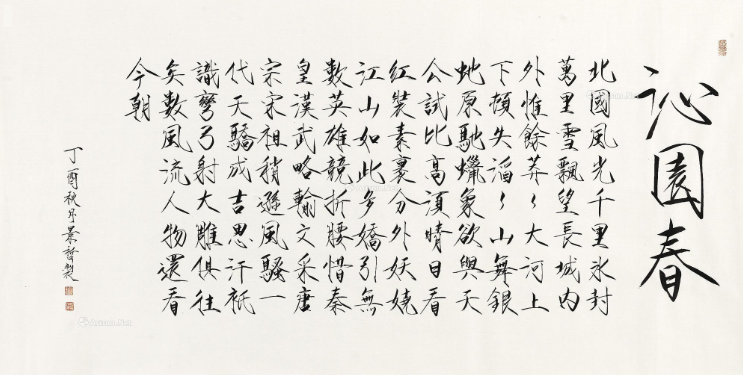 沁園春
北國風光千里氷封
萬里雪飄望長城内
外惟餘莽々大河上
下頓失滔々山舞銀
虵原馳蠟象欲與天
公試比高須晴日看
紅裝素裹分外妖嬈
江山如此多嬌引無
數英雄競折腰惜秦
皇漢武略輸文采唐
宗宋祖稍遜風騷一
代天驕成吉思汗衹
識彎弓射大雕俱往
矣數風流人物還看
今朝
丁酉秋月製